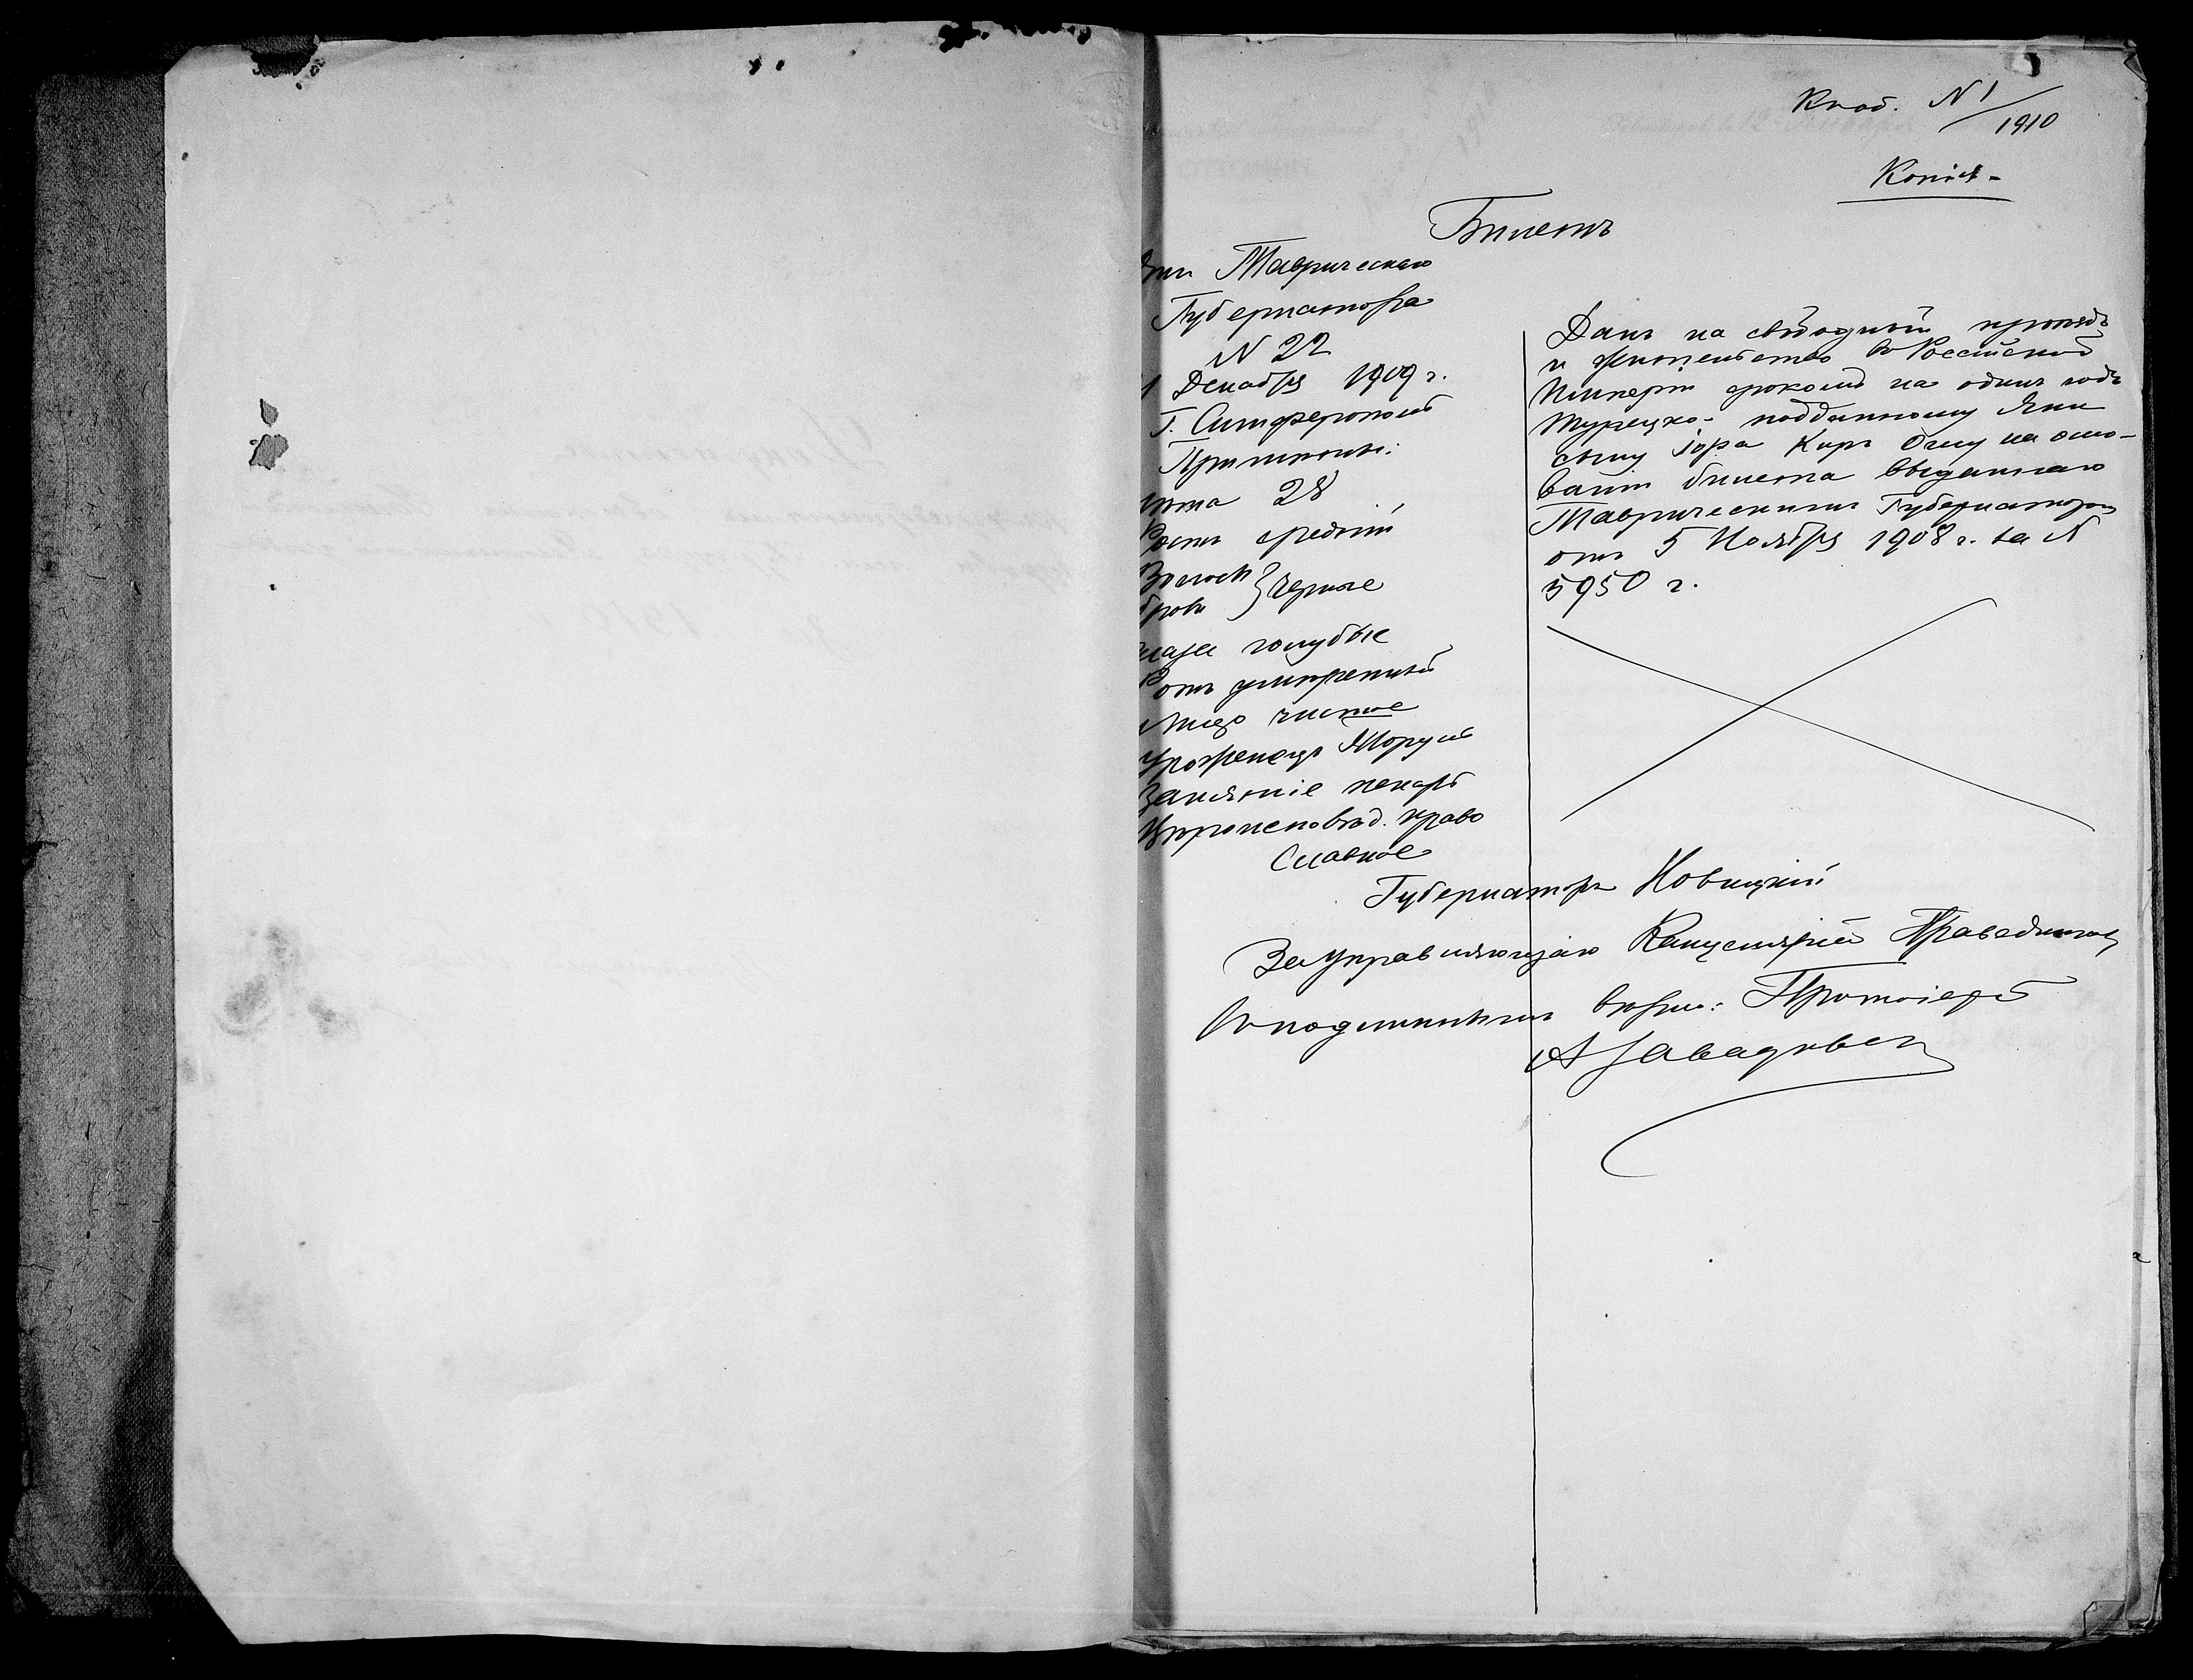 Кноб. N 1/1910
Копія-
Билетъ
Таврическаго
Губернатора
N 22
1 Декабря 1909 г.
Г. Симферополь
Приметы:
Лета 28
Ростъ средній
Волосы } черные
брови
глаза голубые
Ротъ умеренный
Лицо чистое
Уроженецъ
Занятіе пекарь
Вероисповед. право
славное
Данъ на свободный проездъ
и жительство въ Россійской
Имперіи срокомъ на одинъ годъ
турецко-подданному Яни
сыну Іора Киръ Оглу на осно-
ваніи билета выданнаго
Таврическимъ Губернаторомъ
отъ 5 Ноября 1908 г. за N
5950 г.
Губернаторъ Новицкій
За Управляющаго Канцеляріей
Съ подлиннымъ верно: Протоіерей